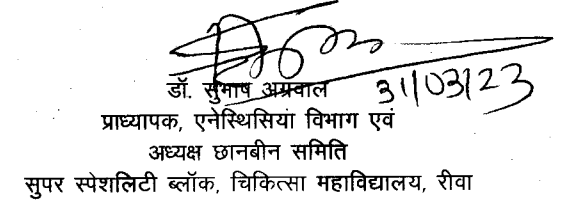 डॉ. सुभाष अग्रवाल
31/03/23
प्राध्यापक, एनेस्थिसियां विभाग एवं
अध्यक्ष छानबीन समिति
सुपर स्पेशलिटी ब्लॉक, चिकित्सा महाविद्यालय, रीवा